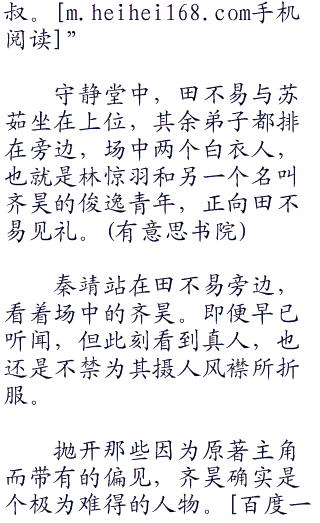 叔。[m.heihei168.com手机
阅读]”
守静堂中，田不易与苏
茹坐在上位，其余弟子都排
在旁边，场中两个白衣人，
也就是林惊羽和另一个名叫
齐昊的俊逸青年，正向田不
易见礼。(有意思书院)
秦靖站在田不易旁边，
看着场中的齐昊。即便早已
听闻，但此刻看到真人，也
还是不禁为其摄人风襟所折
服。
抛开那些因为原著主角
而带有的偏见，齐昊确实是
个极为难得的人物。[百度一